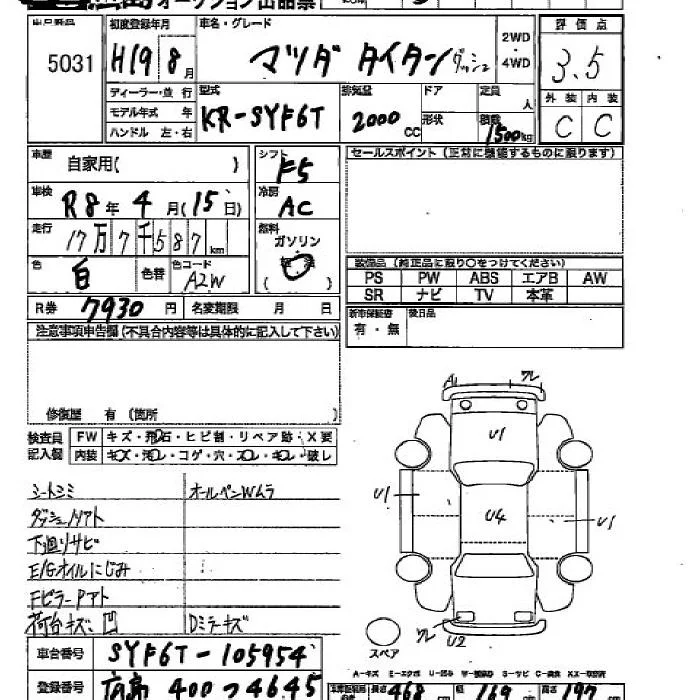 オークション出品票
5031
初度登録年月
H19 8月
車名・グレード
マツダ タイタンダッシュ
2WD
4WD
評価点
3.5
外装 内装
C C
ディーラー・並行
モデル年式 年
ハンドル 左・右
型式
KR-SYF6T
排気量
2000 CC
ドア
形状
定員
人
積載
1500kg
車歴
自家用( )
シフト
F5
車検
R8年4月(15日)
冷房
AC
走行
17万7千587km
燃料
ガソリン
( )
色
白
色替
色コード
A2W
R券 7930円 名変期限 月 日
セールスポイント(正常に機能するものに限ります)
装備品(純正品に限り○をつけてください)
PS PW ABS エアB AW
SR ナビ TV 本革
新車保証書
有・無
後日品
注意事項申告欄(不具合内容等は具体的に記入して下さい)
修復歴 有(箇所 )
検査員
記入欄
FW キズ・飛石・ヒビ割・リペア跡・X要
内装 キズ・汚レ・コゲ・穴・スレ・キレ・破レ
シートシミ
オールペンWムラ
ダッシュノリアト
下廻リサビ
E/Gオイルにじみ
FピラーPアト
荷台キズ、凹
Dミラーキズ
車台番号 SYF6T-105954
登録番号 広島 400 つ 4645
A
ワレ
U1
U1
U4
U1
ワレ
U2
スペア
長さ 468 幅 169 高さ 197